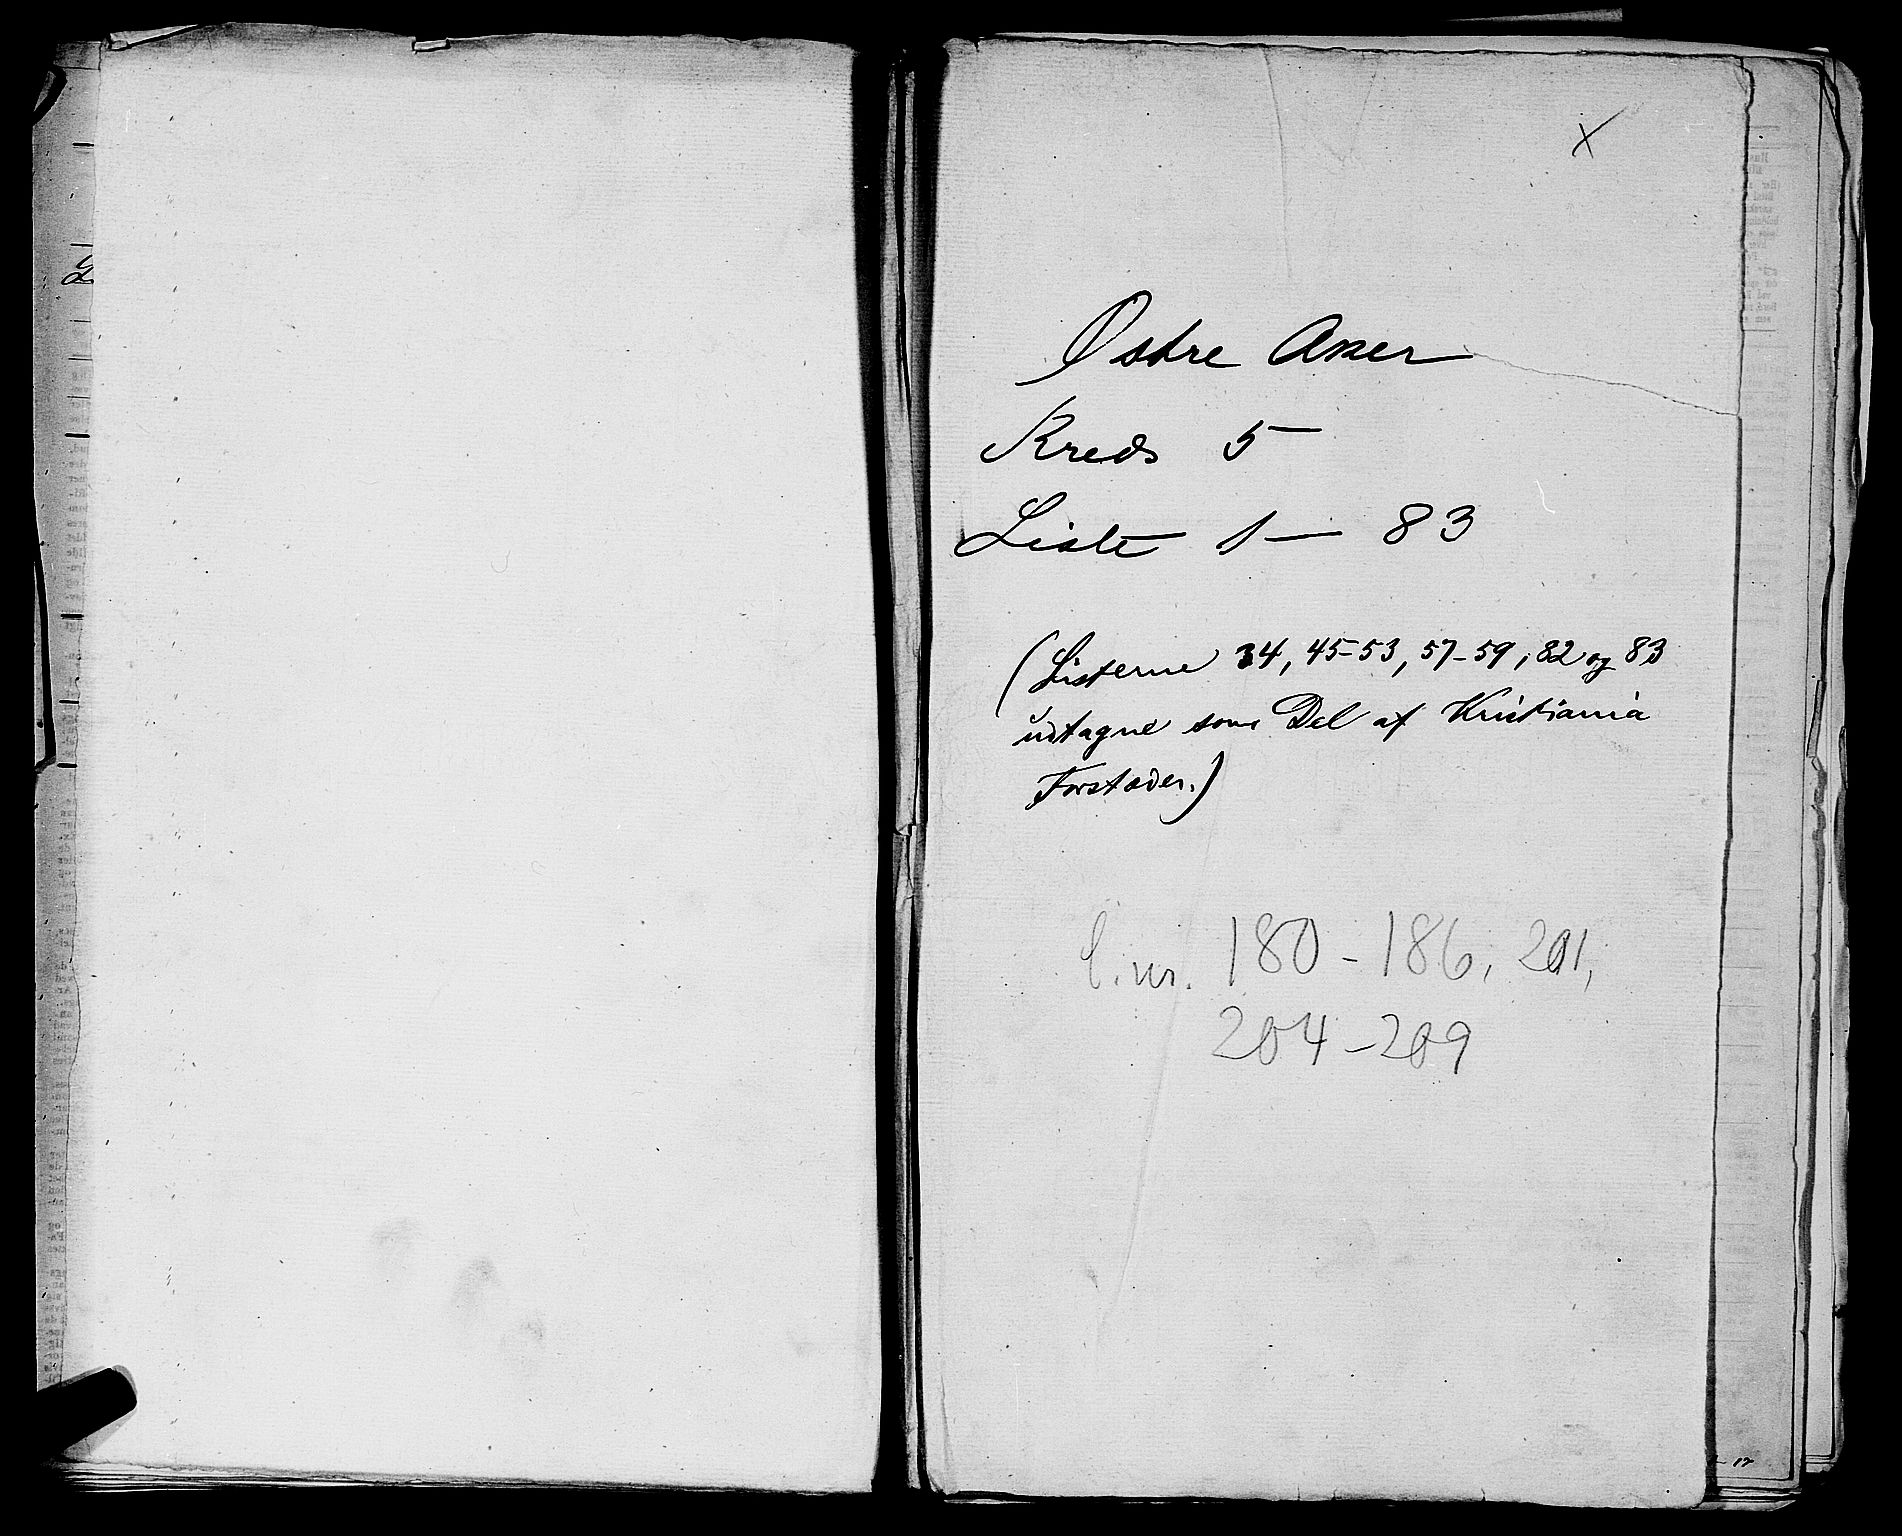 x
Østre Aker
Kreds 5
Liste 1 — 83
(Listerne 34, 45-53, 57-59, 82 og 83
udtagne som Del af Kristiania
Forstæder.)
l.nr. 180 - 186, 201,
204 - 209